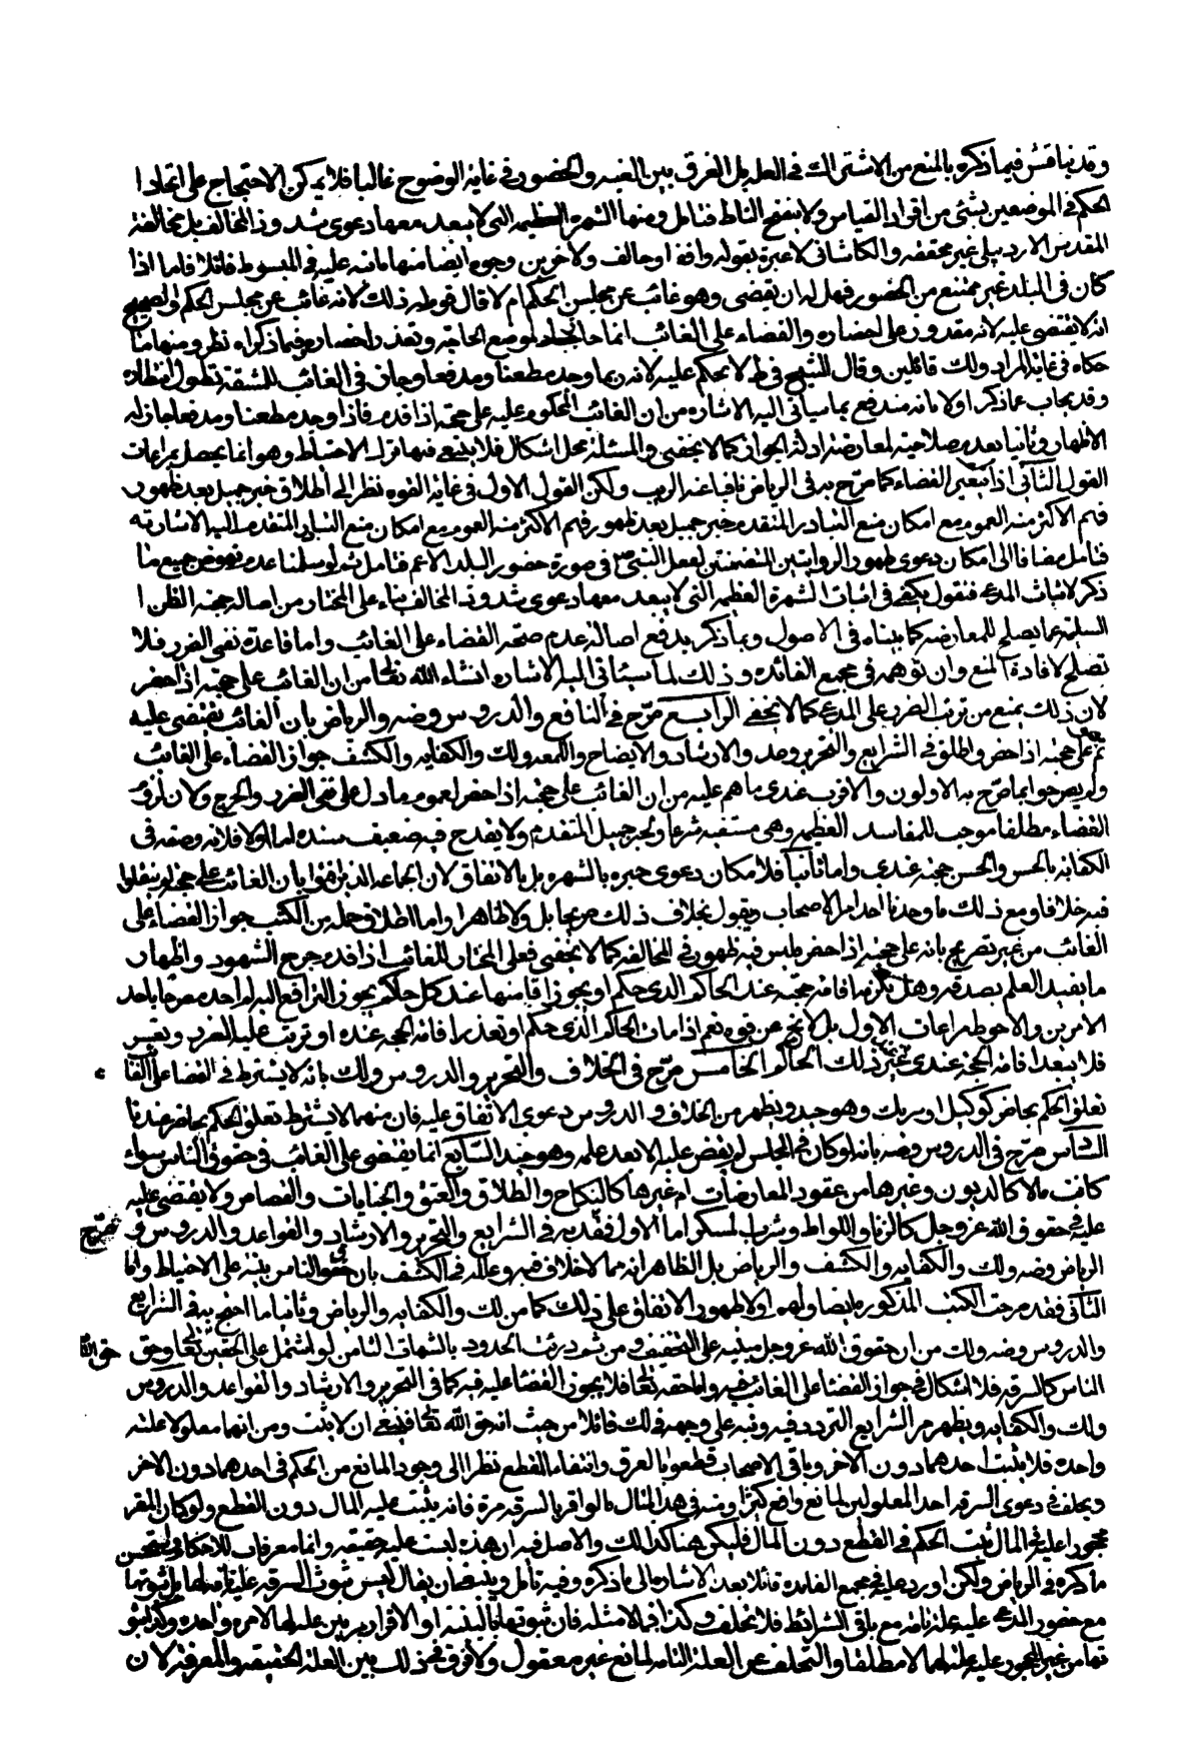 وقد يناقش فيما ذكره بالمنع من الاشتراك فى العلة بل الفرق بين الغيبة والحضور فى غاية الوضوح غالبا فلا يمكن الاحتجاج على اتحاد ا
لحكم فى الموضعين بشئ من افراد القياس ولا بتنقيح المناط فتامل ومنها الشهرة العظيمة التى لا يبعد معها دعوى شذوذ المخالف بل مخالفة
المقدس الاردبيلى غير محققة والكاشانى لا عبرة بقوله وافق او خالف ولاخرين وجوه ايضا منها ما نبه عليه فى المبسوط قائلا فاما اذا
كان فى البلد غير ممتنع من الحضور فهل له ان يقضى وهو غائب عن مجلس الحكم ام لا قال قوم له ذلك لانه غائب عن مجلس الحكم والصحيح
انه لا يقضى عليه لانه مقدور على احضاره والقضاء على الغائب انما جاز لموضع الحاجة وتعذر احضاره وفيما ذكراه نظر ومنها ما
حكاه فى غاية المراد ولك قائلين وقال الشيخ فى ط لا يحكم عليه لانه ربما وجد مطعنا ومدفعا وجاز فى الغائب للمشقة بطول انتظاره
وقد يجاب عما ذكر اولا بانه مندفع بما سياتى اليه الاشارة من ان الغائب المحكوم عليه على حجته اذا قدم فاذا وجد مطعنا ومدفعا جاز له
الاظهار وثانيا بعدم صلاحيته لمعارضة ادلة الجواز كما لا يخفى والمسئلة محل اشكال فلا ينبغى فيها ترك الاحتياط وهو انما يحصل بمراعات
القول الثانى اذا لم يتعين القضاء كما صرح به فى الرياض نافيا عنه الريب ولكن القول الاول فى غاية القوه نظرا الى اطلاق خبر جميل بعد ظهور
فهم الاكثر منه العموم مع امكان منع التبادر المتقدم خبر جميل بعد ظهور فهم الاكثر منه العموم مع امكان منع التبادر المتقدم اليه الاشارة
فتامل مضافا الى امكان دعوى ظهور الروايتين المتضمنتين لفعل النبى ص فى صورة حضور البلد الاعم فتامل ثم لو سلمنا عدم نهوض جميع ما
ذكر لاثبات المدعى فنقول يكفى فى اثبات الشهرة العظيمة التى لا يبعد معها دعوى شذوذ المخالف بناء على المختار من اصالة حجية الظن ا
لسليمة عما يصلح للمعارضة كما بيناه فى الاصول وبما ذكر يدفع اصالة عدم صحة القضاء على الغائب واما قاعدة نفى الضرر فلا
تصلح لافادة المنع وان توهمه فى مجمع الفائدة وذلك لما سياتى اليه الاشارة انشاء الله تعالى من ان الغائب على حجته اذا حضر
لان ذلك يمنع من ترتب الضرر على المدعى كما لا يخفى الرابع صرح فى النافع والدروس وضه والرياض بان الغائب يقضى عليه
ثم هو على حجته اذا حضر واطلق فى الشرايع والتحرير وعد والارشاد والايضاح واللمعه ولك والكفاية والكشف جواز القضاء على الغائب
ولم يصرحوا بما صرح به الاولون والاقرب عندى ما هم عليه من ان الغائب على حجته اذا حضر لعموم ما دل على نفى الضرر والحرج ولان لزوم
القضاء مطلقا موجب للمفاسد العظيمة وهى مستقبحة شرعا ولخبر جميل المتقدم ولا يقدح فيه ضعيف سنده اما اولا فلانه وصفه فى
الكفاية بالحسن والحسن حجة عندى واما ثانيا فلامكان دعوى جبره بالشهرة بل بالاتفاق لان الجماعة الذين افتوا بان الغائب على حجته لم ينقلوا
فيه خلافا ومع ذلك ما وجدنا احدا من الاصحاب يقول بخلاف ذلك صريحا بل ولا ظاهرا واما اطلاق جملة من الكتب جواز القضاء على
الغائب من غير تصريح بانه على حجته اذا حضر فليس فيه ظهور فى المخالفة كما لا يخفى فعلى المختار للغائب اذا قدم جرح الشهود واظهار
ما يفيد العلم بصدقه وهل يلزم اقامة حجته عند الحاكم الذى حكم او يجوز اقامتها عند كل حاكم يجوز الترافع اليه لم اجد مصرحا باحد
الامرين والاحوط مراعات الاول بل لا يخ عن قوه نعم اذا مات الحاكم الذى حكم او تعذر اقامة الحجة عنده او ترتب عليه الضرر وتعسر
فلا يبعد اقامة الحجة عندى غير ذلك الحاكم الخامس صرح فى الخلاف والتحرير والدروس ولك بانه لا يشترط فى القضا على الغا ء
تعلق الحكم بحاضر كوكيل او شريك وهو جيد ويظهر من الخلاف والدروس دعوى الاتفاق عليه فان منهما لا يشترط تعلق الحكم بحاضر عندنا
السادس صرح فى الدروس وضه بانه لو كان فى المجلس لم يقض عليه الا بعد علمه وهو جيد السابع انما يقضى على الغائب فى حقوق الناس سواء
كانت مالا كالديون وغيرها من عقود المعاوضات ام غيرها كالنكاح والطلاق والعتق والجنايات والقصاص ولا يقضى عليه
عليه فى حقوق الله عز وجل كالزنا واللواط وشرب المسكر اما الاول فقد صرح به فى الشرايع والتحرير والارشاد والقواعد والدروس و
الرياض وضه ولك والكفاية والكشف والرياض بل الظاهر انه مما لا خلاف فيه وعلله فى الكشف بان حقوق الناس مبنية على الاحتياط واما
الثانى فقد صرحت الكتب المذكورة ايضا ولهم اولا ظهور الاتفاق على ذلك كما من لك والكفاية والرياض وثانيا ما احتج به فى الشرايع
والدروس وضه ولك من ان حقوق الله عز وجل مبنية على التخفيف ومن ثم درئت الحدود بالشبهات الثامن لو اشتمل على الحقين حق الله تعالى وحق
الناس كالسرقة فلا اشكال فى جواز القضا على الغائب فيه واما حقه تعالى فلا يجوز القضا عليه فيه كما فى التحرير والارشاد والقواعد والدروس
ولك والكفاية ويظهر من الشرايع التردد فيه ونبه على وجهه فى لك قائلا من حيث انه حق الله تعالى فينبغى ان لا يثبت ومن انهما معلولا علة
واحدة فلا يثبت احدهما دون الاخر وباقى الاصحاب قطعوا بالفرق وانتفاء القطع نظرا الى وجود المانع من الحكم فى احدهما دون الاخر
ويخلف فى دعوى السرقة احد المعلولين لمانع واقع كثيرا ومنه فى هذا المثال ما لو اقر بالسرقة مرة فانه يثبت عليه المال دون القطع ولو كان المقر
محجورا عليه فى المال ثبت الحكم فى القطع دون المال فليكن هنا كذلك والاصل فيه ان هذه ليست علة حقيقة وانما معرفات للاحكام
ما ذكره فى الرياض ولكن اورد عليه فى مجمع الفائدة قائلا بعد الاشارة الى ما ذكره وفيه تامل وينبغى ان يقال ليس ثبوت السرقة علة تامة لهما بل ثبوتها
مع حضور المدعى عليه علة تامة مع باقى الشرائط فلا تخلف وكذا فى الامثلة فان ثبوتهما بالبينة او الاقرار مرتين علة لهما لا مرة واحدة وكذا ثبو
تها من غير المحجور عليه علة لهما لا مطلقا والتخلف عن العلة التامة لمانع غير معقول ولا فرق فى ذلك بين العلة الحقيقية والمعرفة لان